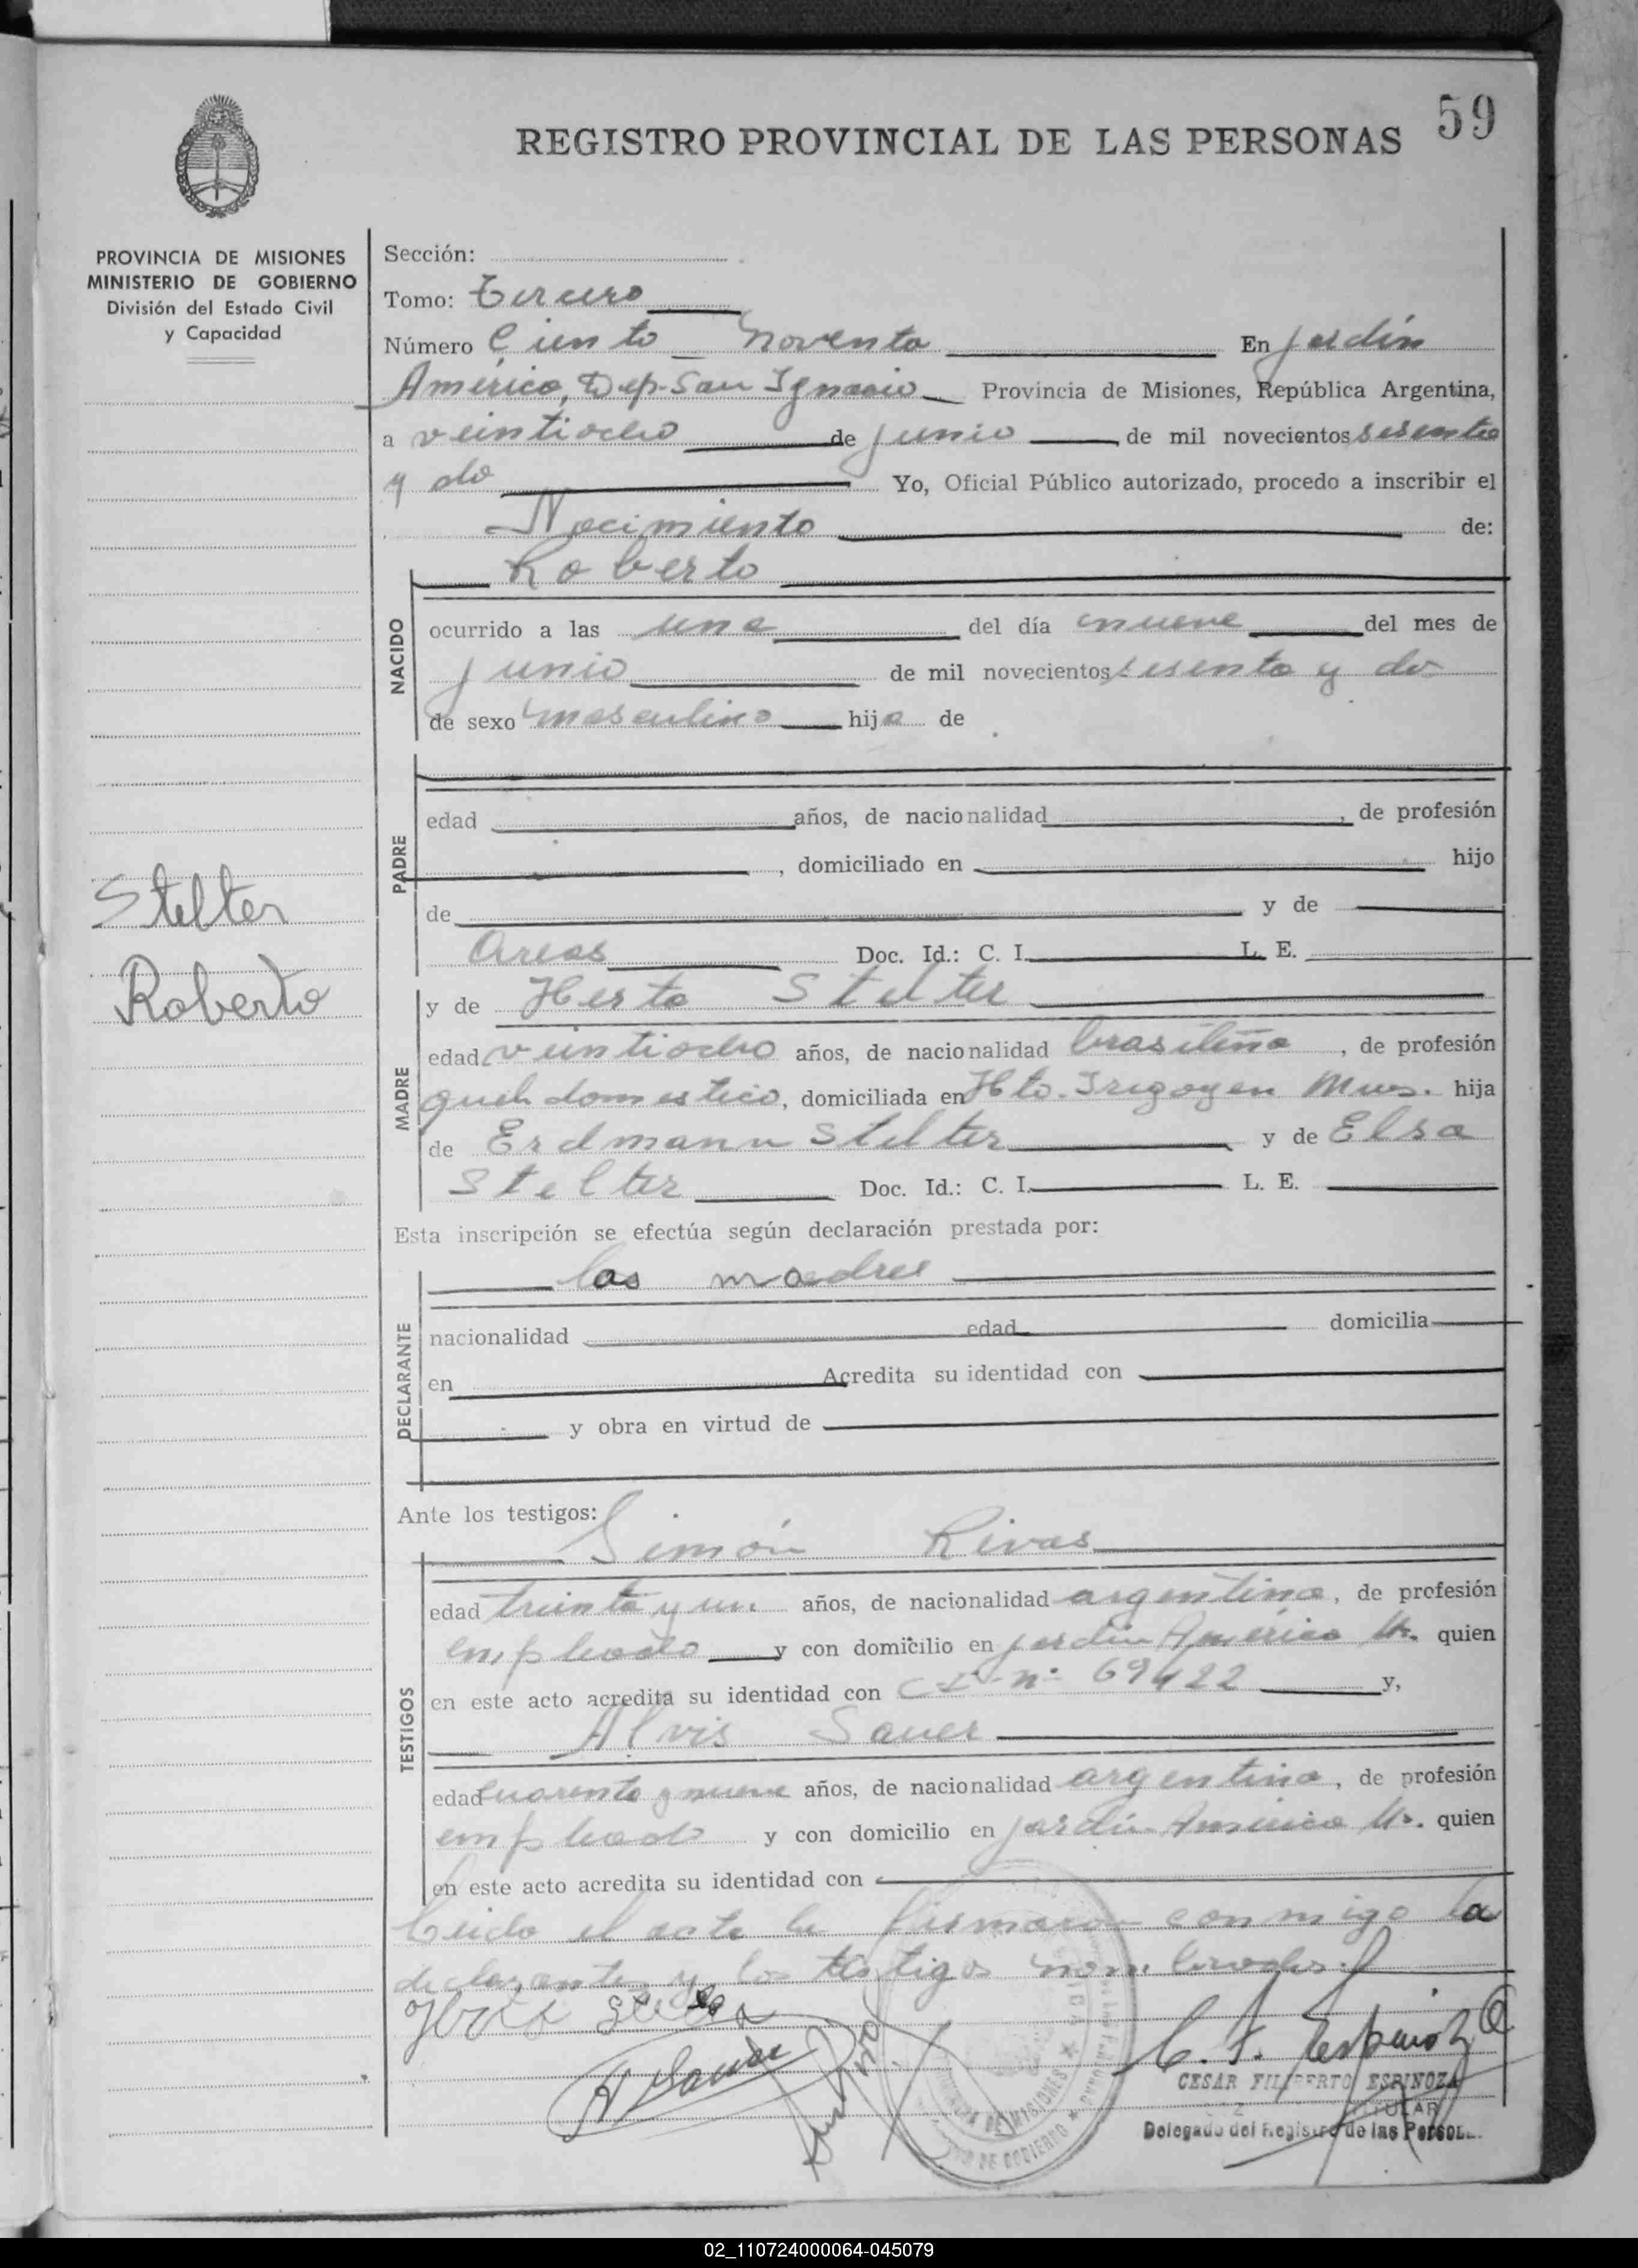 59
REGISTRO PROVINCIAL DE LAS PERSONAS
PROVINCIA DE MISIONES
MINISTERIO DE GOBIERNO
División del Estado Civil
y Capacidad
Stelter
Roberto
Sección:
Tomo: Tercero
Número Ciento Noventa En Jardín
América, Dep. San Ignacio Provincia de Misiones, República Argentina,
a veintiocho de junio de mil novecientos sesenta
y do Yo, Oficial Público autorizado, procedo a inscribir el
Nacimiento de:
Roberto
NACIDO
ocurrido a las una del día nueve del mes de
junio de mil novecientos sesenta y do
de sexo masculino hijo de
PADRE
edad años, de nacionalidad , de profesión
, domiciliado en hijo
de y de
Doc. Id.: C. I. L. E.
MADRE
y de Herta Stelter
edad veintiocho años, de nacionalidad brasileña , de profesión
domestico, domiciliada en Hto. Irigoyen hija
de Erdmann Stelter y de Elsa
Stelter Doc. Id.: C. I. L. E.
Esta inscripción se efectúa según declaración prestada por:
DECLARANTE
las madre
nacionalidad edad domicilia
en Acredita su identidad con
y obra en virtud de
Ante los testigos:
TESTIGOS
Simón Rivas
edad treinta y un años, de nacionalidad argentino, de profesión
empleado y con domicilio en Jardín América quien
en este acto acredita su identidad con C I nº 69422 y,
Alvis Sauer
edad cuarenta y nueve años, de nacionalidad argentino, de profesión
empleado y con domicilio en Jardín América quien
en este acto acredita su identidad con
Leido el acta la firmaron conmigo la
declarante y los testigos nombrados.
C. F. Espinoza
CESAR FILIBERTO ESPINOZA
TITULAR
Delegado del Registro de las Person
DE MISIONES
DE GOBIERNO
02_110724000064-045079